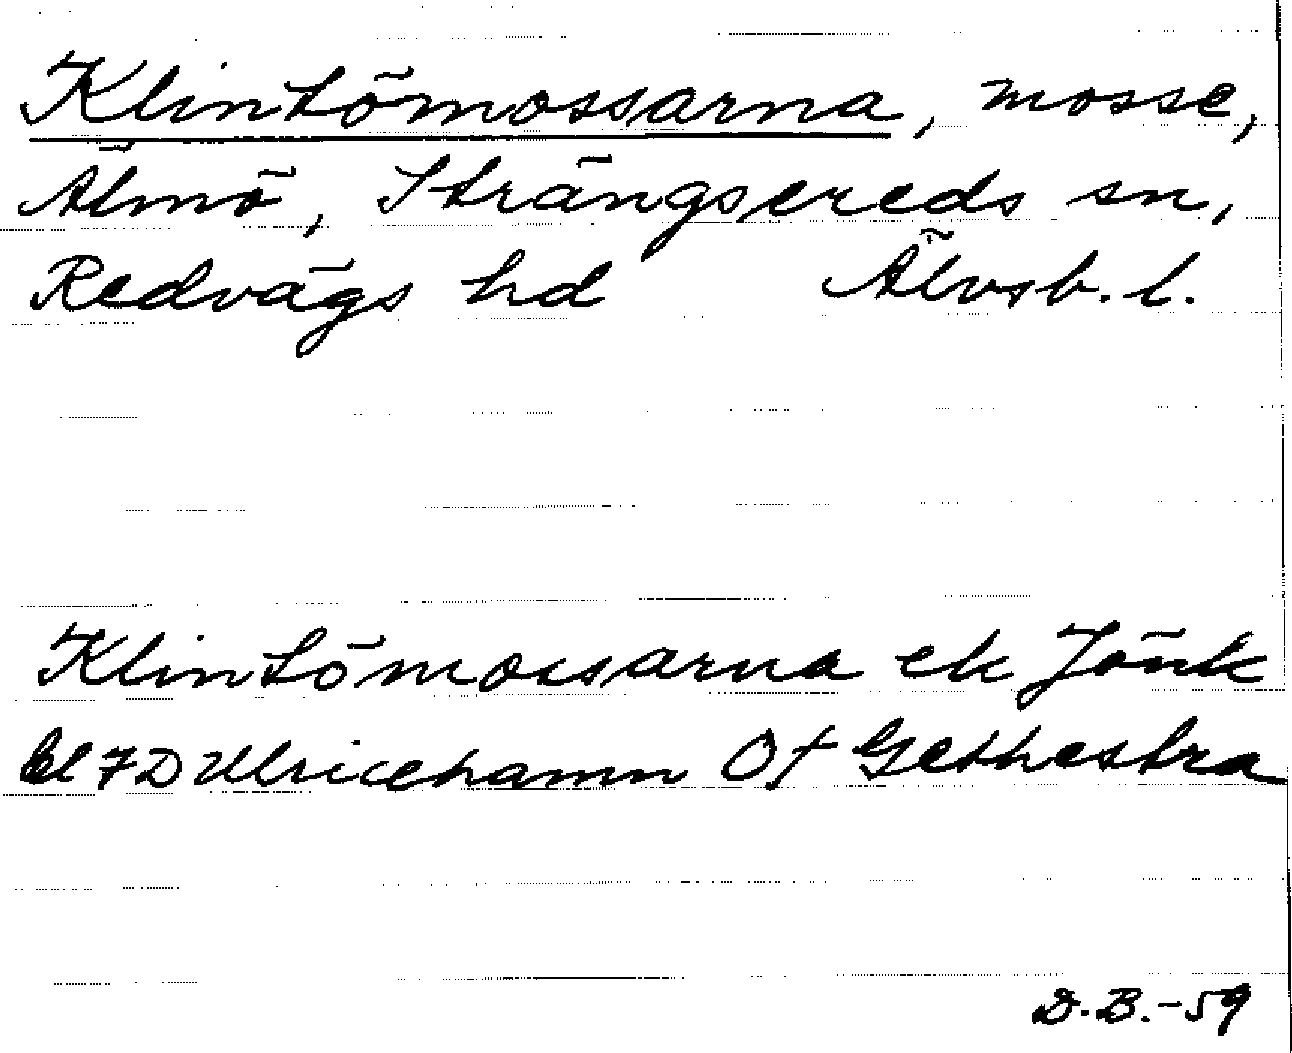 Klintömossarna, mosse,
Älmö, Strängsereds sn,
Redvägs hd Älvsb. l.
Klintömossarna ek Jönk
bl 7D Ulricehamn Ot Gethestra
D.B.-59